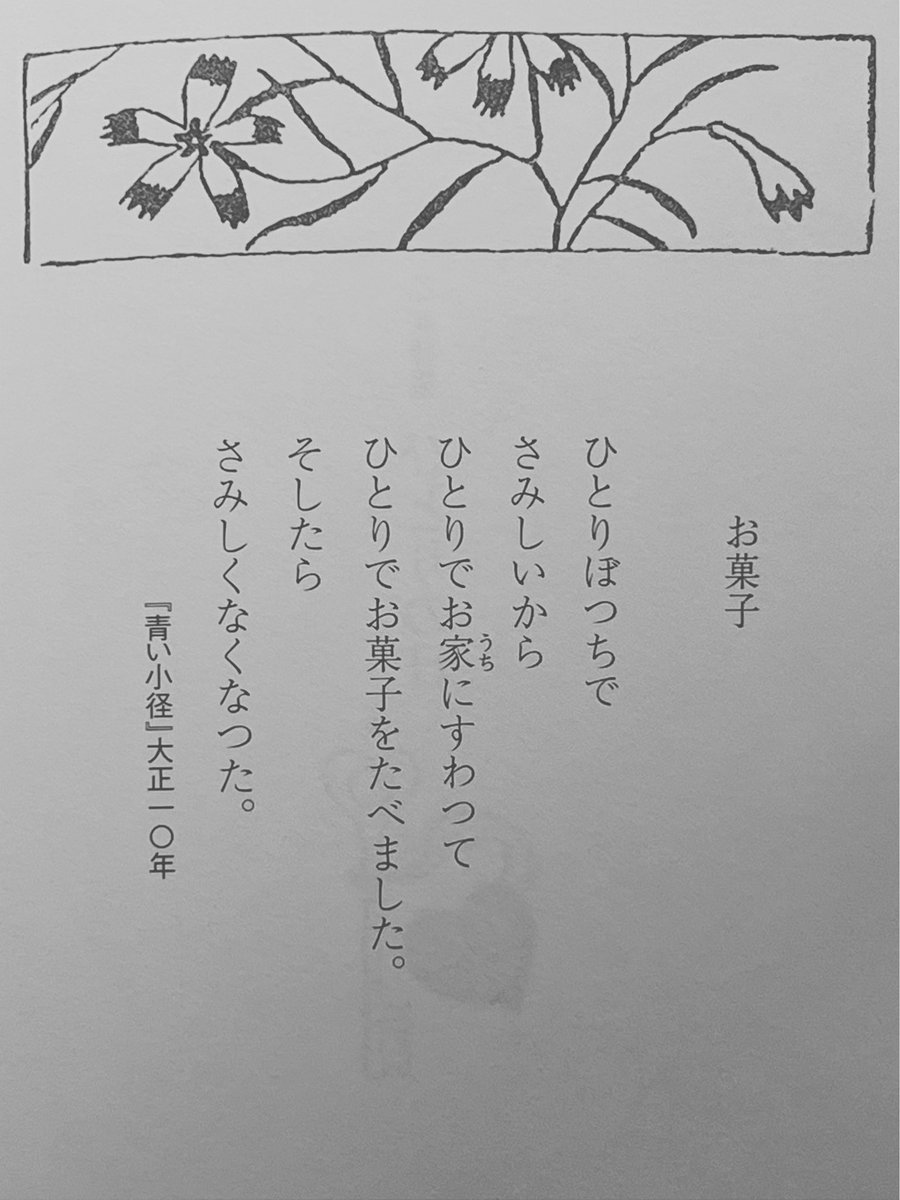 お菓子
ひとりぼつちで
さみしいから
ひとりでお家にすわつて
うち
ひとりでお菓子をたべました。
そしたら
さみしくなくなつた。
『青い小径』大正一〇年